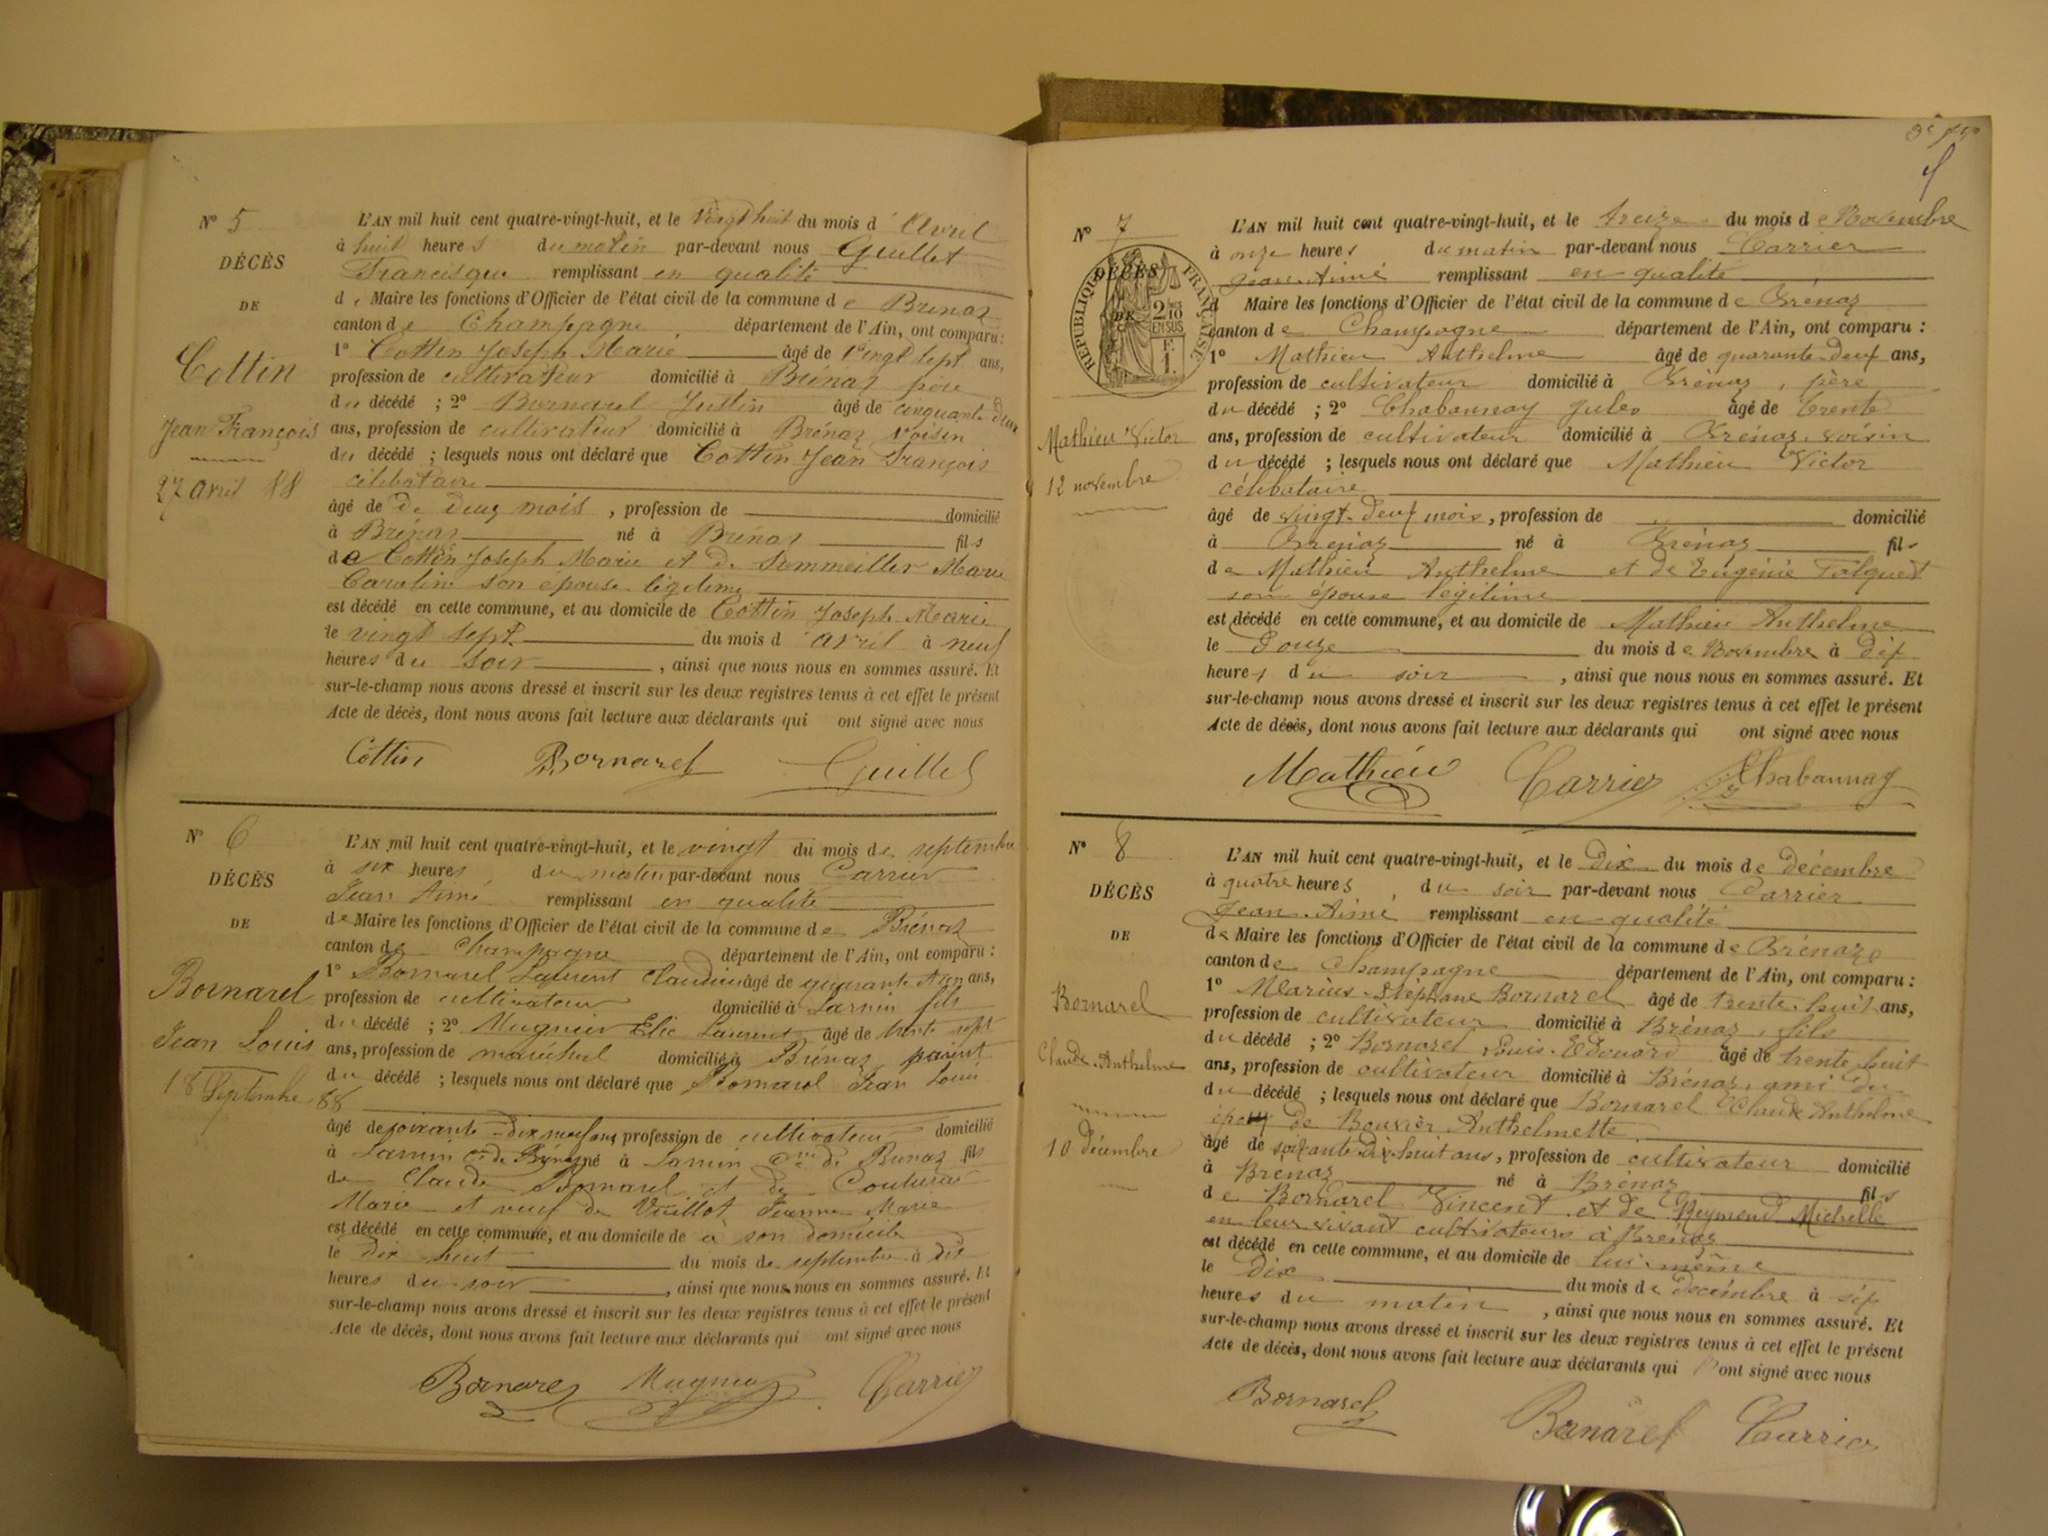 N° 5
DÉCÈS
DE
Cottin
Jean François
27 avril 88
L'AN mil huit cent quatre-vingt-huit, et le vingt huit du mois d'Avril
à huit heures du matin par-devant nous Guillet
Francisque remplissant en qualité
de Maire les fonctions d'Officier de l'état civil de la commune de Brénaz
canton de Champagne département de l'Ain, ont comparu :
1° Cottin Joseph Marie âgé de vingt sept ans,
profession de cultivateur domicilié à Brénaz père
du décédé ; 2° Bornarel Justin âgé de cinquante deux
ans, profession de cultivateur domicilié à Brénaz voisin
du décédé ; lesquels nous ont déclaré que Cottin Jean François
célibataire
âgé de de deux mois, profession de domicilié
à Brénaz né à Brénaz fils
de Cottin Joseph Marie et de Summeiller Marie
Caroline son épouse légitime
est décédé en cette commune, et au domicile de Cottin Joseph Marie
le vingt sept du mois d'avril à neuf
heures du soir, ainsi que nous nous en sommes assuré. Et
sur-le-champ nous avons dressé et inscrit sur les deux registres tenus à cet effet le présent
Acte de décès, dont nous avons fait lecture aux déclarants qui ont signé avec nous
Cottin Bornarel Guillet
N° 6
DÉCÈS
DE
Bornarel
Jean Louis
18 Septembre 88
L'AN mil huit cent quatre-vingt-huit, et le vingt du mois de septembre
à six heures du matin par-devant nous Carrier
Jean Aimé remplissant en qualité
de Maire les fonctions d'Officier de l'état civil de la commune de Brénaz
canton de Champagne département de l'Ain, ont comparu :
1° Bornarel Laurent Claudius âgé de quarante ans,
profession de cultivateur domicilié à Larnin fils
du décédé ; 2° Mugnier Elie Laurent âgé de trente sept
ans, profession de maréchal domicilié à Brénaz parent
du décédé ; lesquels nous ont déclaré que Bornarel Jean Louis
âgé de soixante-dix neuf ans, profession de cultivateur domicilié
à Larnin cne de Brénaz né à Larnin cne de Brénaz fils
de Claude Bornarel et de Couturier
Marie et veuf de Vuillot Jeanne Marie
est décédé en cette commune, et au domicile de à son domicile
le dix huit du mois de septembre à dix
heures du soir, ainsi que nous nous en sommes assuré. Et
sur-le-champ nous avons dressé et inscrit sur les deux registres tenus à cet effet le présent
Acte de décès, dont nous avons fait lecture aux déclarants qui ont signé avec nous
Bornarel Mugnier Carrier
N° 7
DÉCÈS
DE
RÉPUBLIQUE FRANÇAISE
2/10 EN SUS
F. 1.
Mathieu Victor
12 novembre
L'AN mil huit cent quatre-vingt-huit, et le treize du mois de Novembre
à onze heures du matin par-devant nous Carrier
Jean-Aimé remplissant en qualité
d Maire les fonctions d'Officier de l'état civil de la commune de Brénaz
canton de Champagne département de l'Ain, ont comparu :
1° Mathieu Anthelme âgé de quarante-deux ans,
profession de cultivateur domicilié à Brénaz, père
du décédé ; 2° Chabannay Jules âgé de trente
ans, profession de cultivateur domicilié à Brénaz, voisin
du décédé ; lesquels nous ont déclaré que Mathieu Victor
célibataire
âgé de vingt-deux mois, profession de domicilié
à Brénaz né à Brénaz fils
de Mathieu Anthelme et de Eugénie Falquet
son épouse légitime
est décédé en cette commune, et au domicile de Mathieu Anthelme
le Douze du mois de Novembre à dix
heures du soir, ainsi que nous nous en sommes assuré. Et
sur-le-champ nous avons dressé et inscrit sur les deux registres tenus à cet effet le présent
Acte de décès, dont nous avons fait lecture aux déclarants qui ont signé avec nous
Mathieu Carrier Chabannay
N° 8
DÉCÈS
DE
Bornarel
Claude-Anthelme
10 Décembre
L'AN mil huit cent quatre-vingt-huit, et le Dix du mois de décembre
à quatre heures du soir par-devant nous Carrier
Jean-Aimé remplissant en qualité
de Maire les fonctions d'Officier de l'état civil de la commune de Brénaze
canton de Champagne département de l'Ain, ont comparu :
1° Marius-Stéphane Bornarel âgé de trente-huit ans,
profession de cultivateur domicilié à Brénaz, fils
du décédé ; 2° Bornarel Louis-Edouard âgé de trente huit
ans, profession de cultivateur domicilié à Brénaz, ami du
du décédé ; lesquels nous ont déclaré que Bornarel Claude Anthelme
époux de Bouvier Anthelmette
âgé de soixante Dix-huit ans, profession de cultivateur domicilié
à Brénaz né à Brénaz fils
de Bornarel Vincent et de Reymond Michelle
en leur vivant cultivateurs à Brénaz
est décédé en cette commune, et au domicile de lui-même
le Dix du mois de Décémbre à six
heures du matin, ainsi que nous nous en sommes assuré. Et
sur-le-champ nous avons dressé et inscrit sur les deux registres tenus à cet effet le présent
Acte de décès, dont nous avons fait lecture aux déclarants qui ont signé avec nous
Bornarel Bornarel Carrier